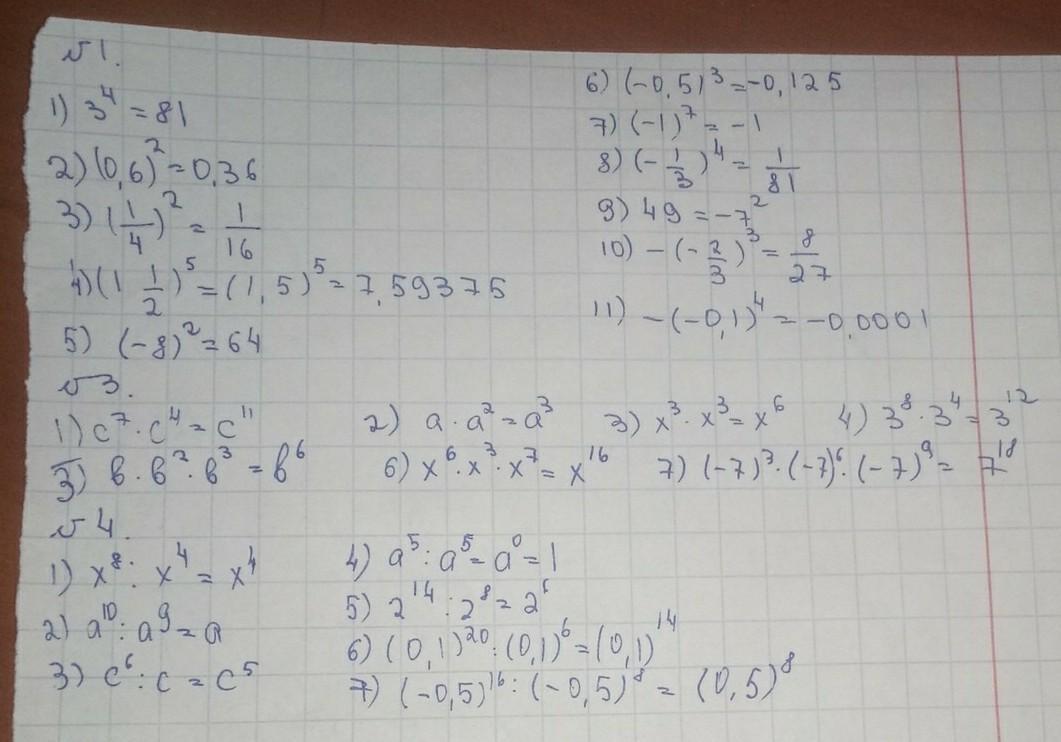 №1.
1) 3⁴ = 81
2) (0,6)² = 0,36
3) (1/4)² = 1/16
4) (1 1/2)⁵ = (1,5)⁵ = 7,59375
5) (-8)² = 64
6) (-0,5)³ = -0,125
7) (-1)⁷ = -1
8) (-1/3)⁴ = 1/81
9) 49 = -7²
10) -(-2/3)³ = 8/27
11) -(-0,1)⁴ = -0,0001
№3.
1) c⁷ · c⁴ = c¹¹ 2) a · a² = a³ 3) x³ · x³ = x⁶ 4) 3⁸ · 3⁴ = 3¹²
5) b · b² · b³ = b⁶ 6) x⁶ · x³ · x⁷ = x¹⁶ 7) (-7)³ · (-7)⁶ · (-7)⁹ = 7¹⁸
№4.
1) x⁸ : x⁴ = x⁴
2) a¹⁰ : a⁹ = a
3) c⁶ : c = c⁵
4) a⁵ : a⁵ = a⁰ = 1
5) 2¹⁴ : 2⁸ = 2⁶
6) (0,1)²⁰ : (0,1)⁶ = (0,1)¹⁴
7) (-0,5)¹⁶ : (-0,5)⁸ = (0,5)⁸